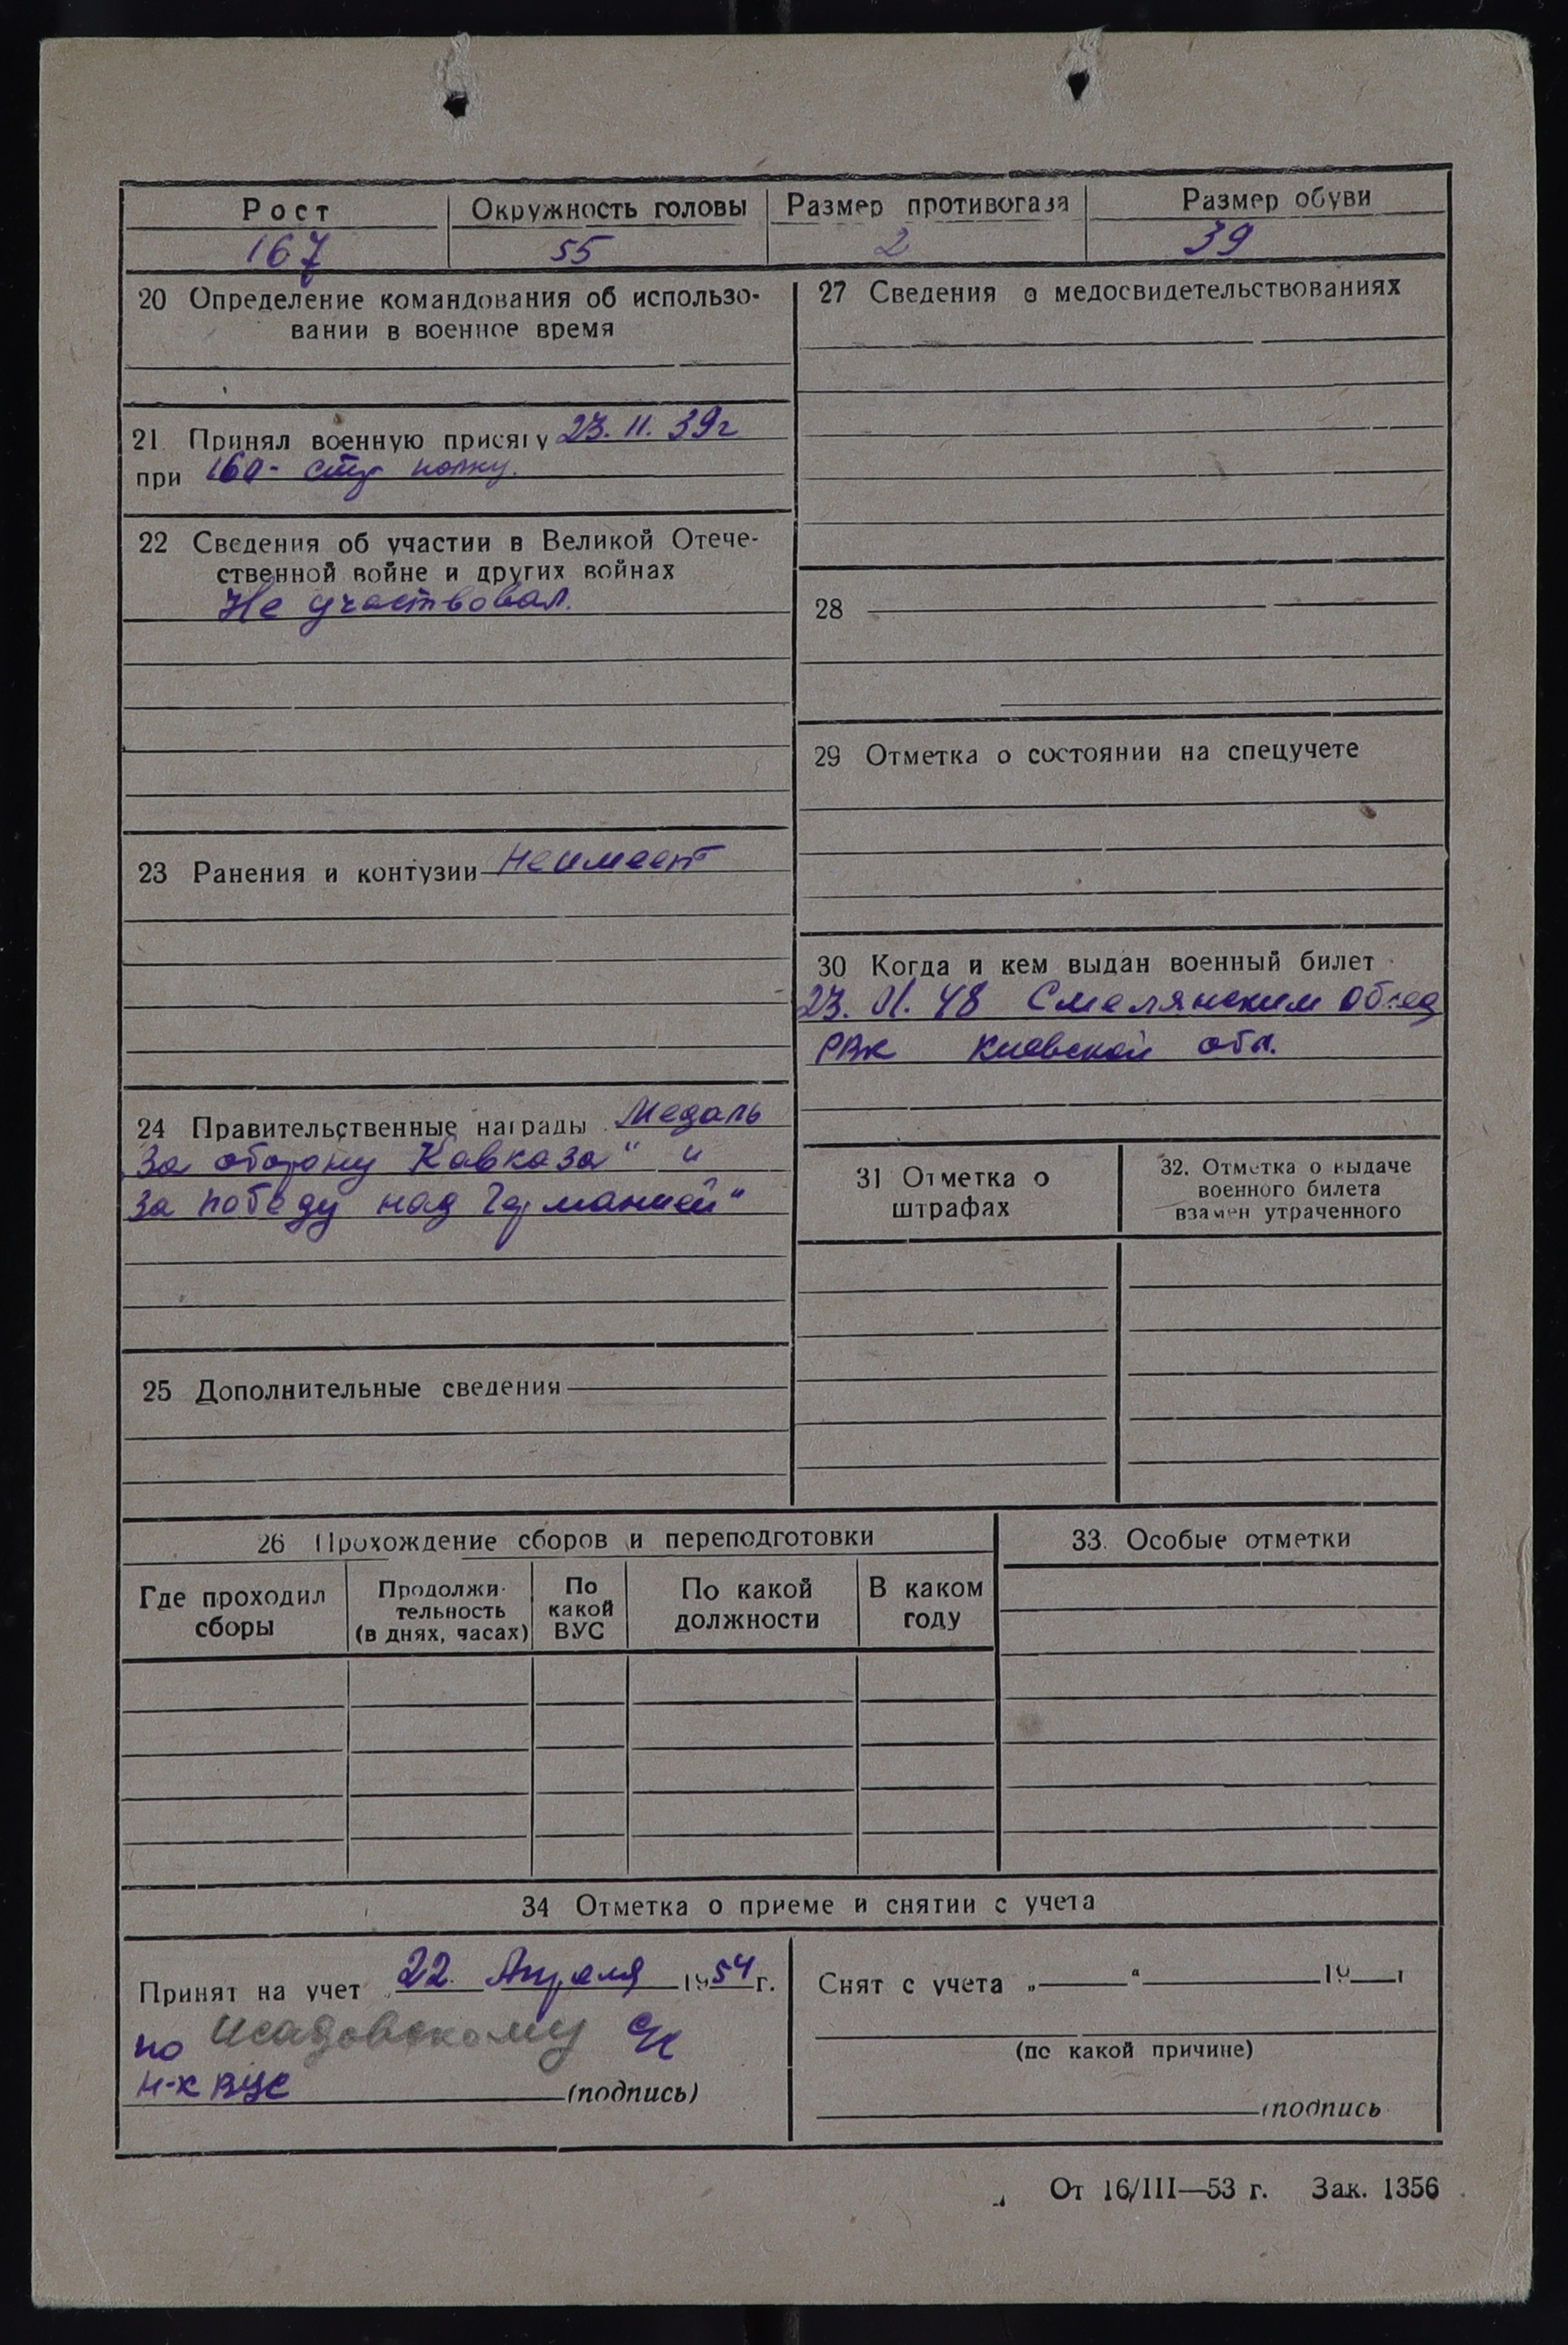 Рост Окружность головы Размер противогаза Размер обуви
167 55 2 39
20 Определение командования об использо-
вании в военное время
21 Принял военную присягу 23.11.39г
при 160- стр полку.
22 Сведения об участии в Великой Отече-
ственной войне и других войнах
Не участвовал.
23 Ранения и контузии Неимеет
24 Правительственные награды Медаль
За оборону Кавказа" и
За победу над Германией"
25 Дополнительные сведения
27 Сведения о медосвидетельствованиях
28
29 Отметка о состоянии на спецучете
30 Когда и кем выдан военный билет
23.01.48 Смелянским
РВК Киевской обл.
31 Отметка о
штрафах
32. Отметка о выдаче
военного билета
взамен утраченного
26 Прохождение сборов и переподготовки
Где проходил
сборы
Продолжи-
тельность
(в днях, часах)
По
какой
ВУС
По какой
должности
В каком
году
33. Особые отметки
34 Отметка о приеме и снятии с учета
Принят на учет 22. Апреля 1954г.
по Исадовскому с/с
н-к ВУС (подпись)
Снят с учета „ " 19 г
(по какой причине)
(подпись
От 16/III—53 г. Зак. 1356